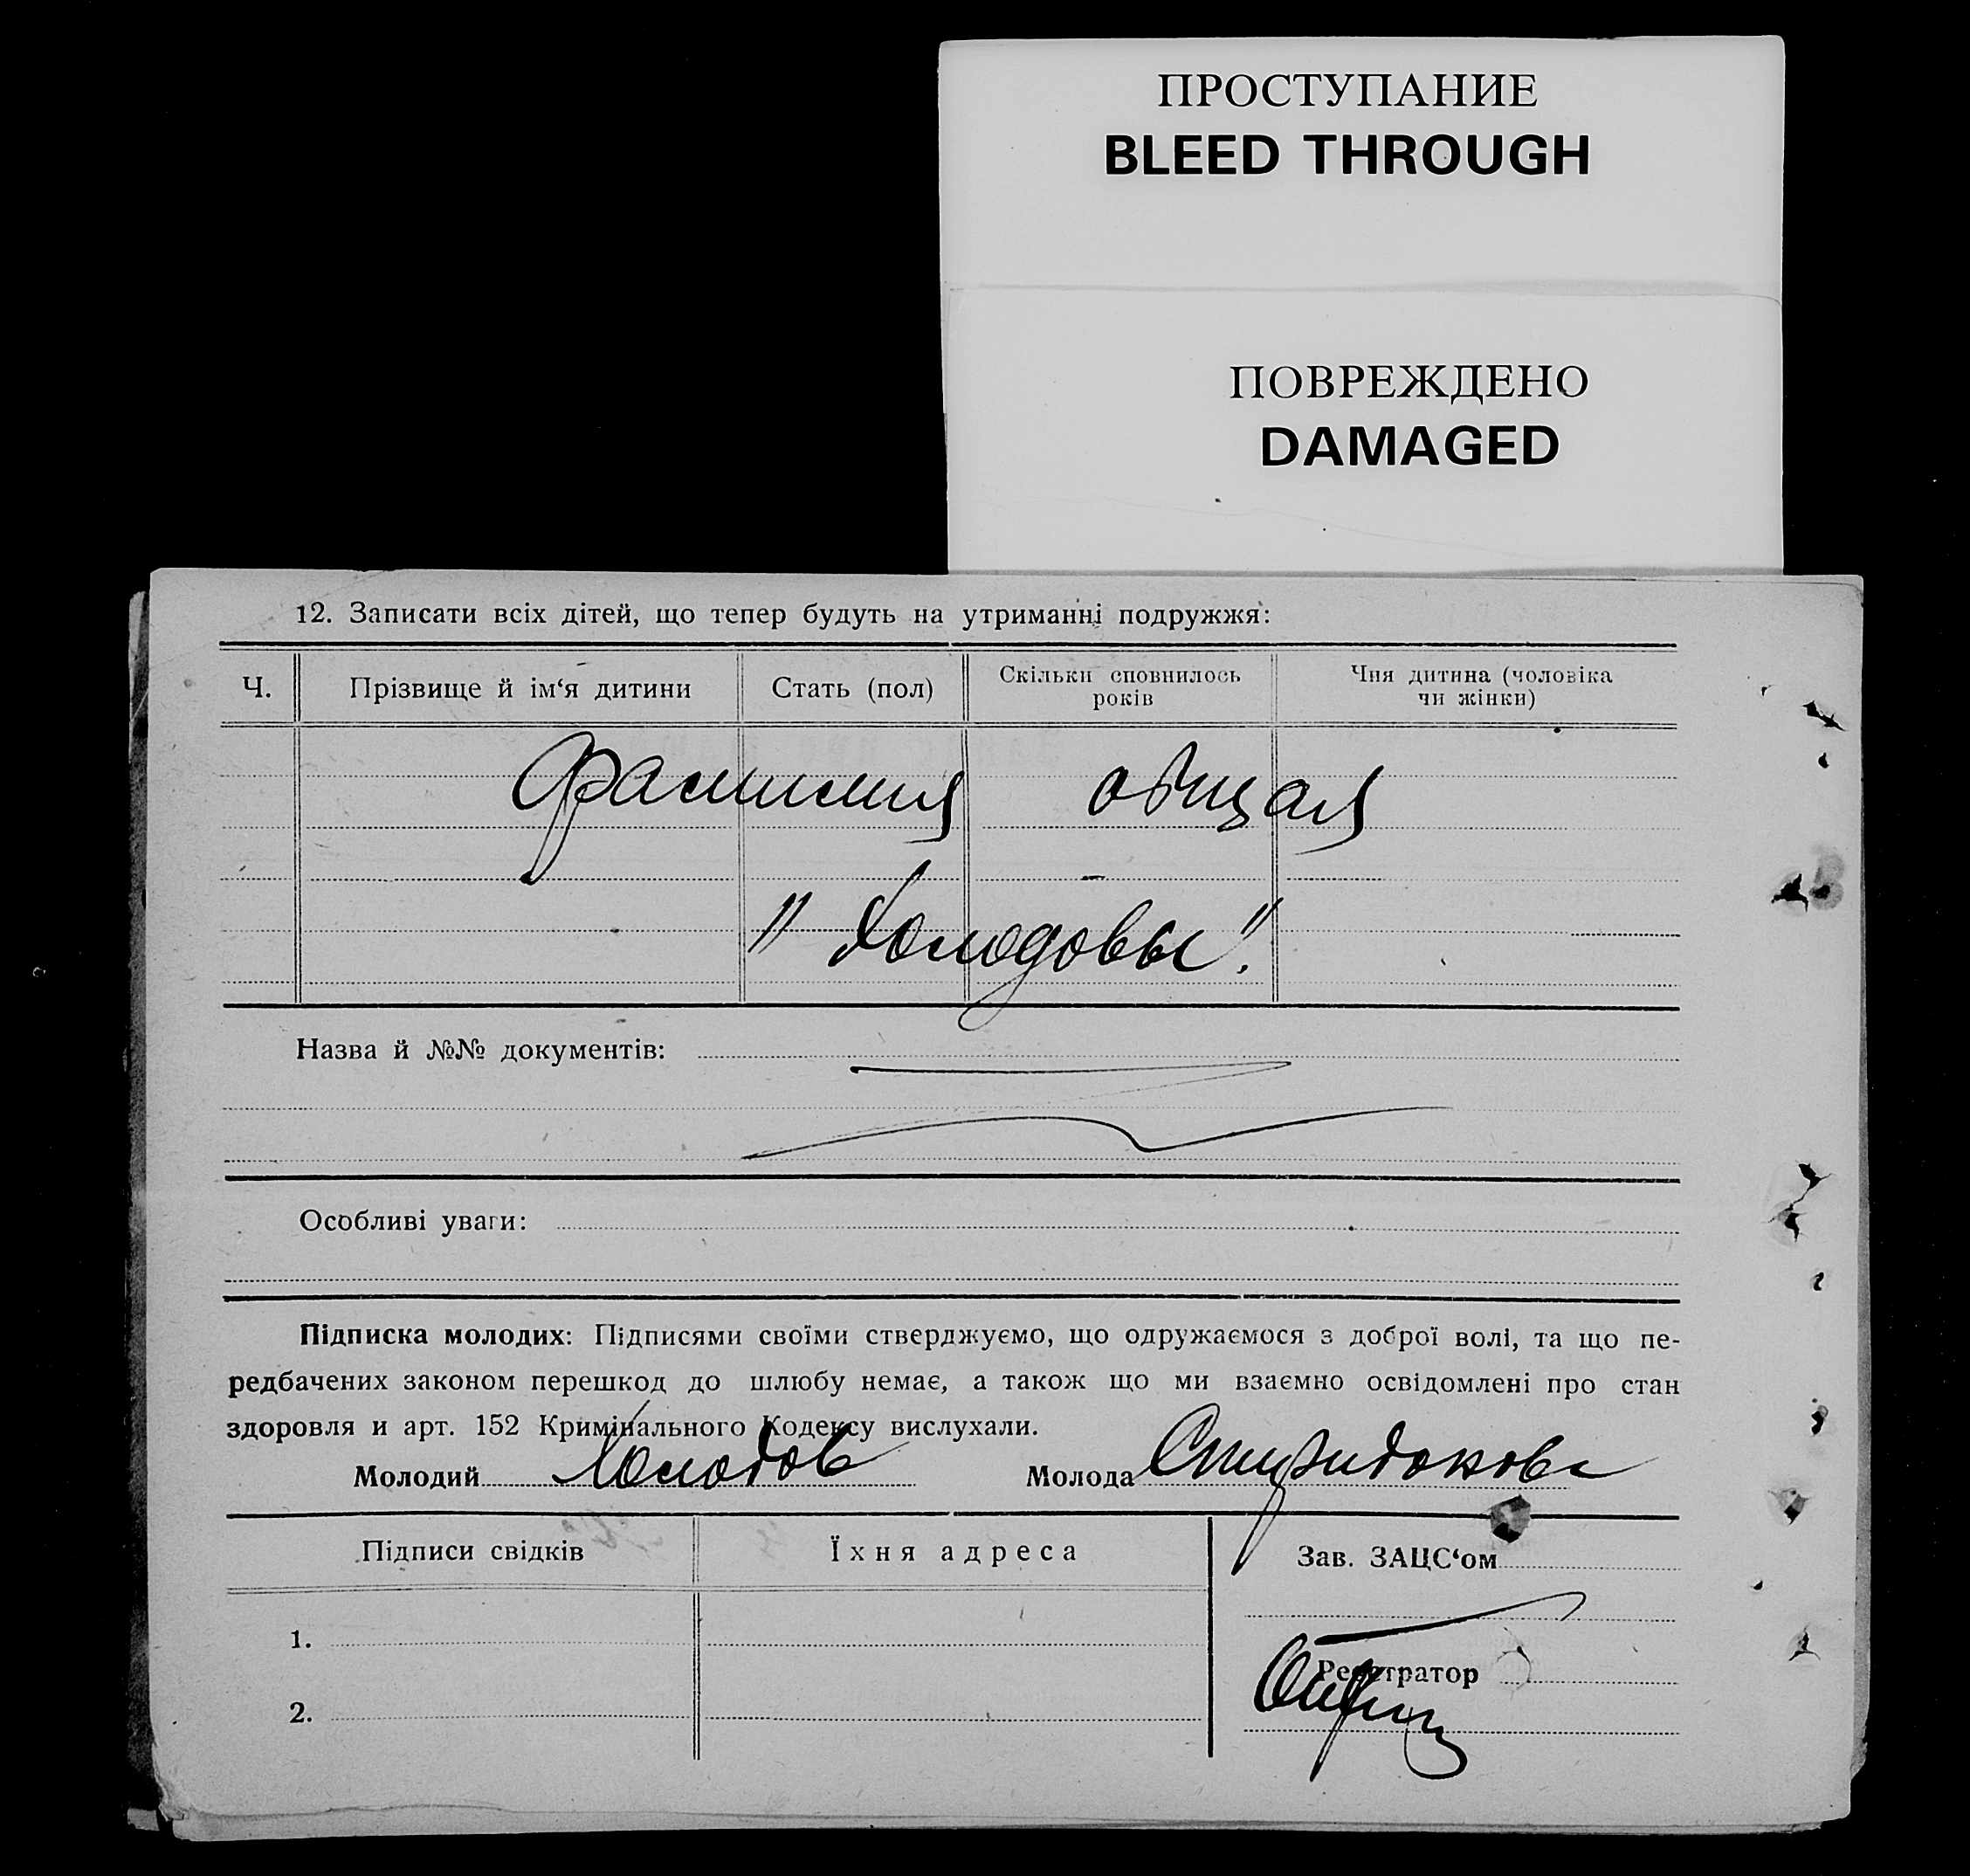 ПРОСТУПАНИЕ
BLEED THROUGH
ПОВРЕЖДЕНО
DAMAGED
12. Записати всіх дітей, що тепер будуть на утриманні подружжя:
Ч.
Прізвище й ім‘я дитини
Стать (пол)
Скільки сповнилось
років
Чия дитина (чоловіка
чи жінки)
Фамилия общая
"Холодовы".
Назва й №№ документів:
Особливі уваги:
Підписка молодих: Підписями своїми стверджуємо, що одружаємося з доброї волі, та що пе-
редбачених законом перешкод до шлюбу немає, а також що ми взаємно освідомлені про стан
здоровля и арт. 152 Кримінального Кодексу вислухали.
Молодий Холодов Молода Спиридонова
Підписи свідків
Їхня адреса
Зав. ЗАЦС‘ом
1.
Реєстратор
2.